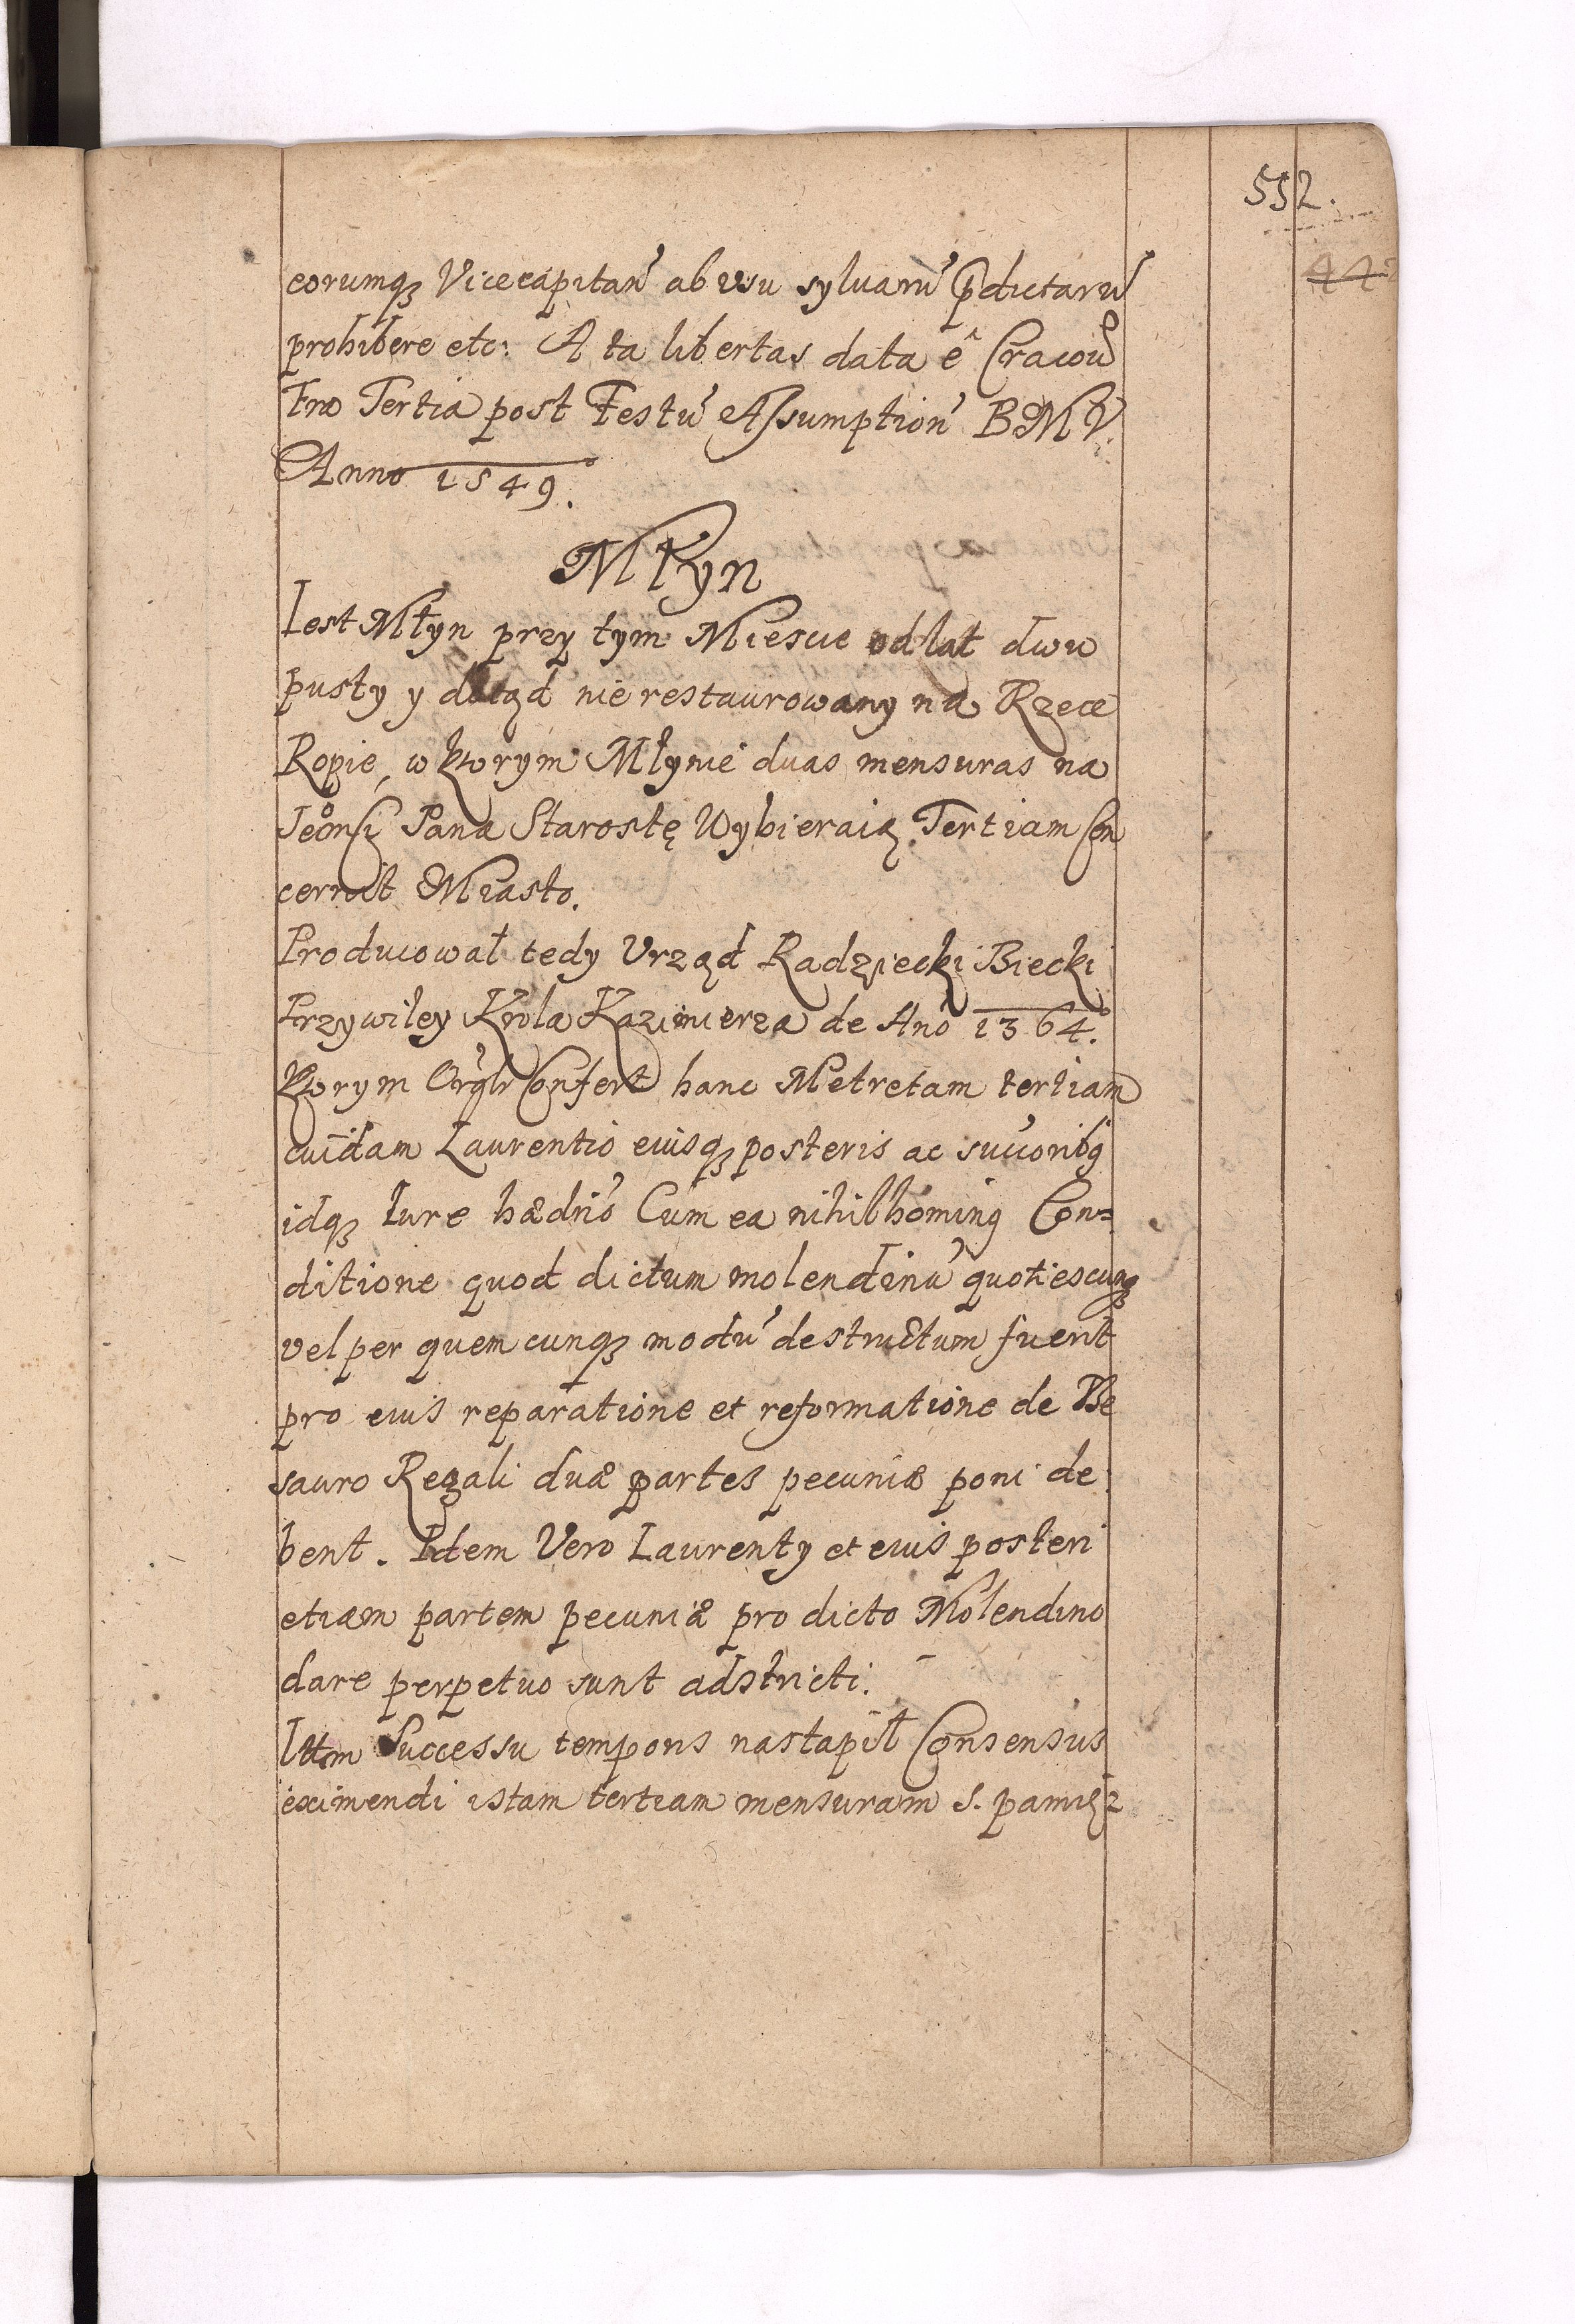 552.
442
eorumqꝫ Vicecapitan̄ ab vsu syluarū p̄dictarū
prohibere etc: A ta libertas data ē Cracoū
Fra Tertia post Festū Assumption̄ BMV.
Anno 1549.
Młyn
Iest Młyn przy tym Miescie od lat dwu
pusty y dotąd nie restaurowany na Rzece
Ropie, w ktorym Młynie duas mensuras na
Pana Starostę Wybieraią Tertiam Con
cernit Miasto.
Producował tedy Vrząd Radziecki Biecki
Przywiley Krola Kazimierza de Anō 1364.
Ktorym Confert hanc Metretam tertiam
cuidam Laurentio eiusqꝫ posteris ac
idqꝫ Iure Cum ea nihilhoming Con=
ditione quod dictum molendinū quotiescunqꝫ
vel per quem cunqꝫ modū destructum fuerit
pro eius reparatione et reformatione de The
sauro Regali duæ partes pecuniæ poni de
bent. Idem Vero Laurenty et eius posteri
etiam partem pecuniæ pro dicto Molendino
dare perpetuo sunt adstricti. -
Ittem Successu temporis nastąpił Consensus
eximendi istam tertiam mensuram s. pamięz